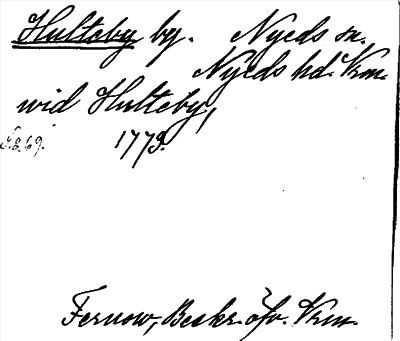 Hulteby by. Nyeds sn.
Nyeds hd. Vrm.
wid Hulteby,
S. 269. 1773.
Fernow, Beskr. öfv. Vrm.